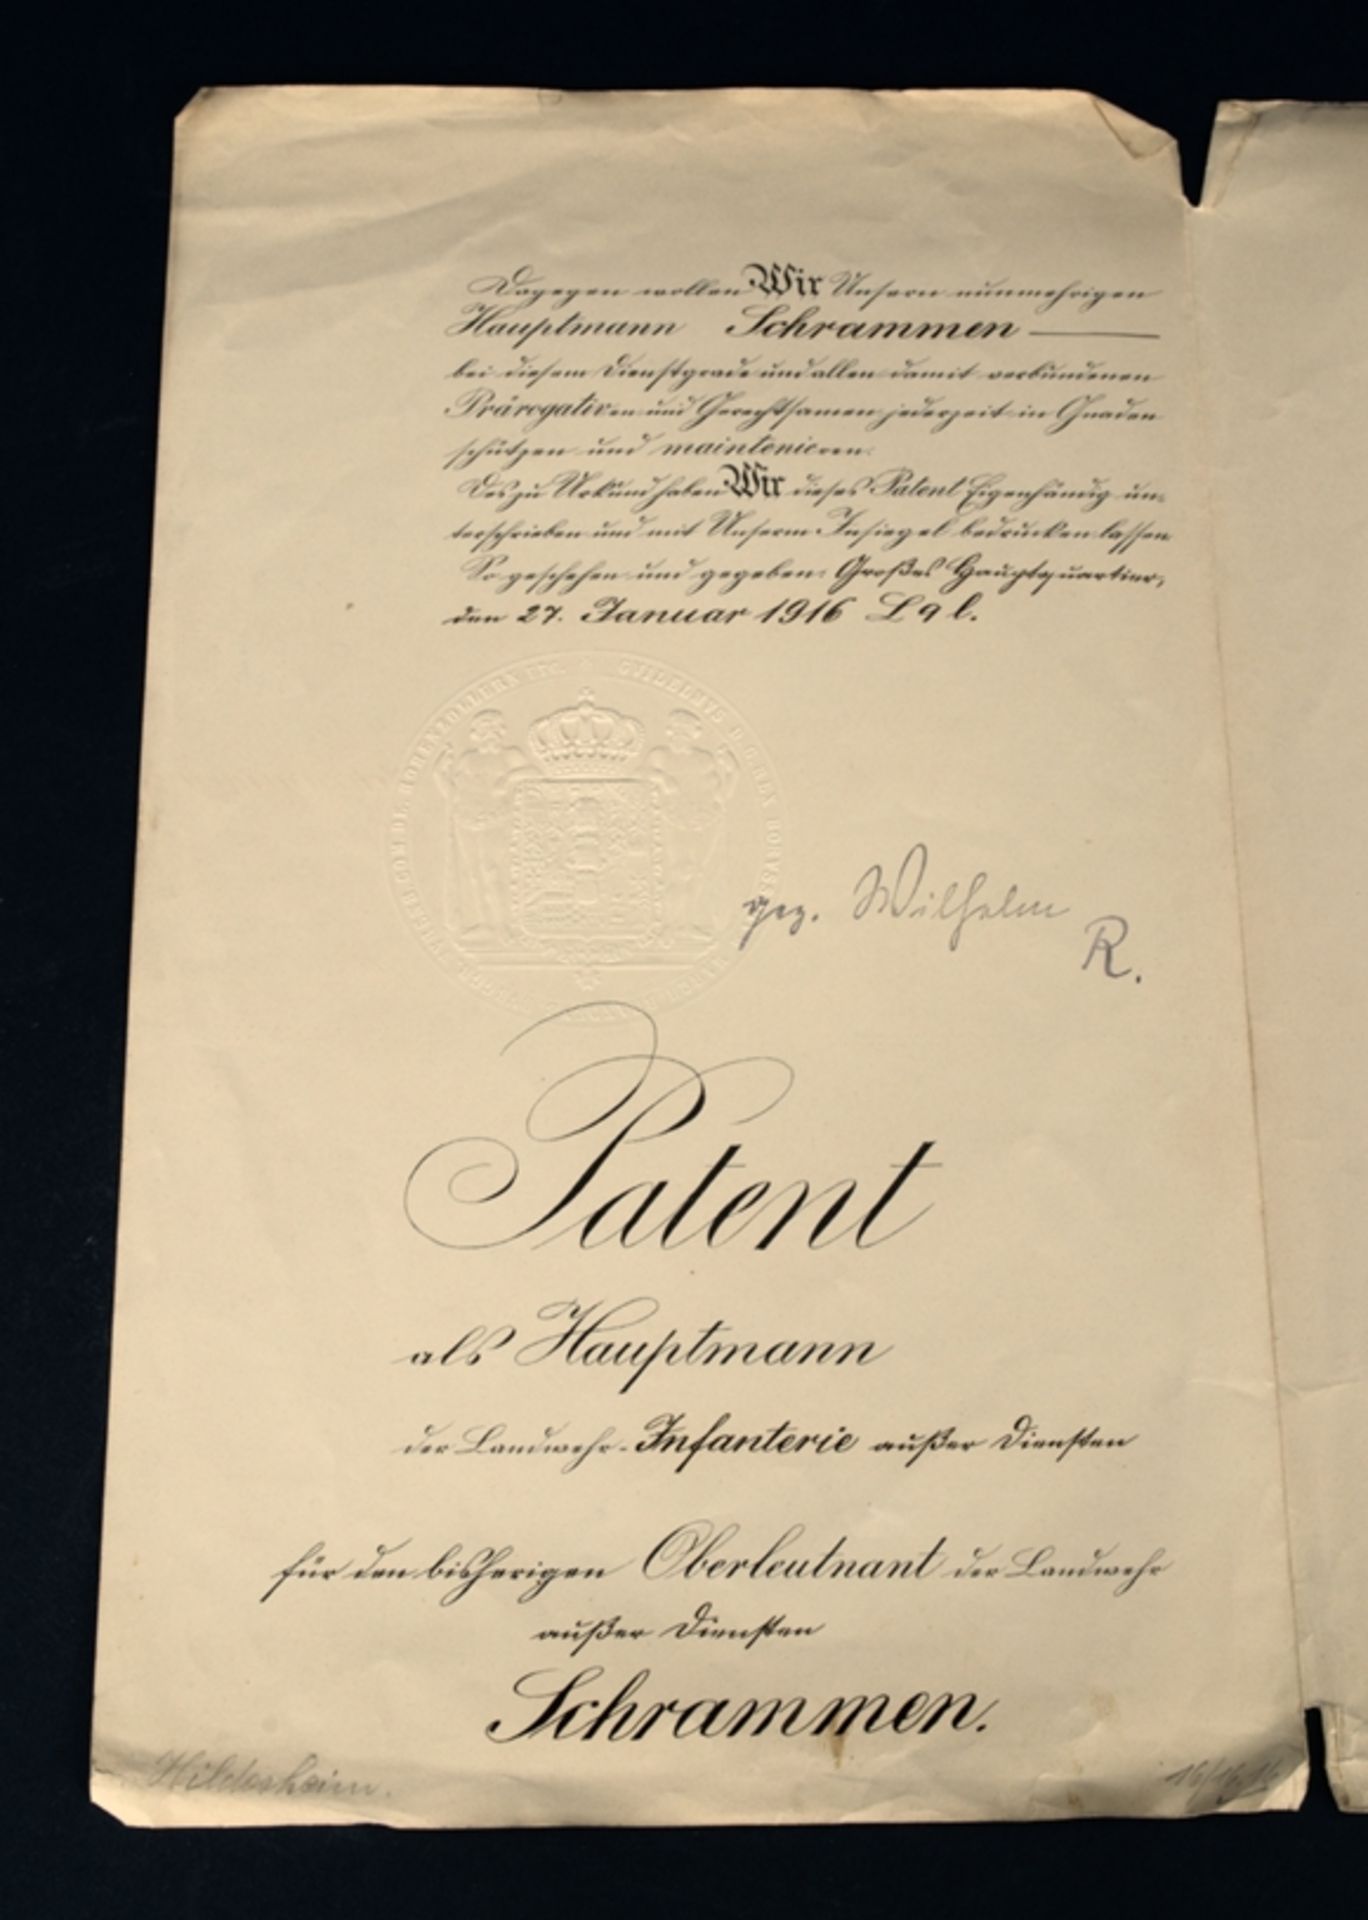 Dagegen wollen Wir Unsern nunmehrigen
Hauptmann Schrammen
bei diesem Dienstgrade und allen damit verbundenen
Prärogativen und Gerechtsamen jederzeit in Gnaden
schützen und maintenieren.
Des zu Urkund haben Wir dieses Patent Eigenhändig un-
terschrieben und mit Unserm Insiegel bedrucken lassen
So geschehen und gegeben Großes Hauptquartier,
den 27. Januar 1916 L 9 l.
GUILELMUS D. G. REX BORUSS
COM. DE. HOHENZOLLERN ETC.
gez. Wilhelm
R.
Patent
als Hauptmann
der Landwehr-Infanterie außer Diensten
für den bisherigen Oberleutnant der Landwehr
außer Diensten
Schrammen.
Hildesheim.